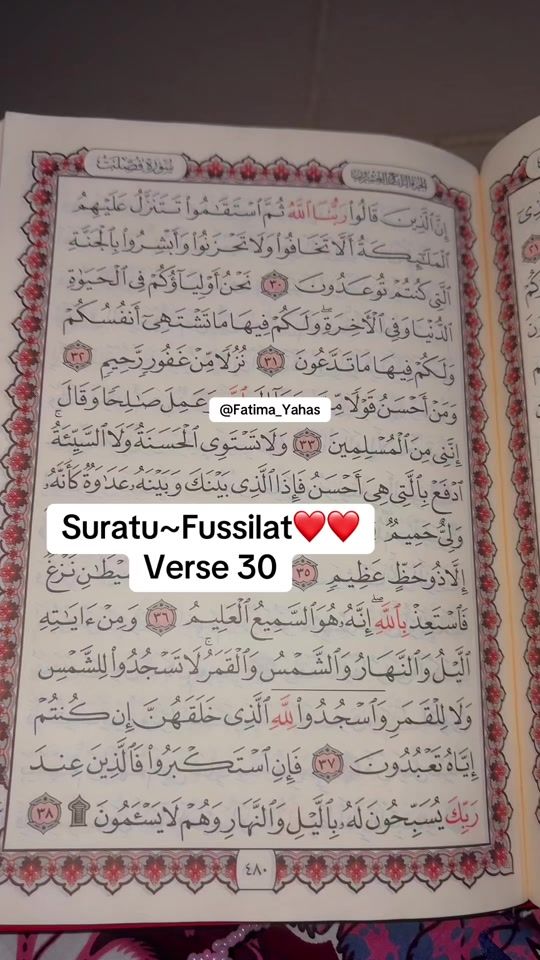 سورة فصلت
الجزء الرابع والعشرون
إِنَّ ٱلَّذِينَ قَالُوا۟ رَبُّنَا ٱللَّهُ ثُمَّ ٱسْتَقَٰمُوا۟ تَتَنَزَّلُ عَلَيْهِمُ
ٱلْمَلَٰٓئِكَةُ أَلَّا تَخَافُوا۟ وَلَا تَحْزَنُوا۟ وَأَبْشِرُوا۟ بِٱلْجَنَّةِ
ٱلَّتِى كُنتُمْ تُوعَدُونَ ٣٠ نَحْنُ أَوْلِيَآؤُكُمْ فِى ٱلْحَيَوٰةِ
ٱلدُّنْيَا وَفِى ٱلْءَاخِرَةِ ۖ وَلَكُمْ فِيهَا مَا تَشْتَهِىٓ أَنفُسُكُمْ
وَلَكُمْ فِيهَا مَا تَدَّعُونَ ٣١ نُزُلًا مِّنْ غَفُورٍ رَّحِيمٍ ٣٢
وَمَنْ أَحْسَنُ قَوْلًا وَعَمِلَ صَٰلِحًا وَقَالَ
@Fatima_Yahas
إِنَّنِى مِنَ ٱلْمُسْلِمِينَ ٣٣ وَلَا تَسْتَوِى ٱلْحَسَنَةُ وَلَا ٱلسَّيِّئَةُ ۚ
ٱدْفَعْ بِٱلَّتِى هِىَ أَحْسَنُ فَإِذَا ٱلَّذِى بَيْنَكَ وَبَيْنَهُۥ عَدَٰوَةٌ كَأَنَّهُۥ
وَلِىٌّ حَمِيمٌ
Suratu~Fussilat❤️❤️
Verse 30
إِلَّا ذُو حَظٍّ عَظِيمٍ ٣٥ نَزْغٌ
فَٱسْتَعِذْ بِٱللَّهِ ۖ إِنَّهُۥ هُوَ ٱلسَّمِيعُ ٱلْعَلِيمُ ٣٦ وَمِنْ ءَايَٰتِهِ
ٱلَّيْلُ وَٱلنَّهَارُ وَٱلشَّمْسُ وَٱلْقَمَرُ ۚ لَا تَسْجُدُوا۟ لِلشَّمْسِ
وَلَا لِلْقَمَرِ وَٱسْجُدُوا۟ لِلَّهِ ٱلَّذِى خَلَقَهُنَّ إِن كُنتُمْ
إِيَّاهُ تَعْبُدُونَ ٣٧ فَإِنِ ٱسْتَكْبَرُوا۟ فَٱلَّذِينَ عِندَ
رَبِّكَ يُسَبِّحُونَ لَهُۥ بِٱلَّيْلِ وَٱلنَّهَارِ وَهُمْ لَا يَسْـَٔمُونَ ۩ ٣٨
٤٨٠